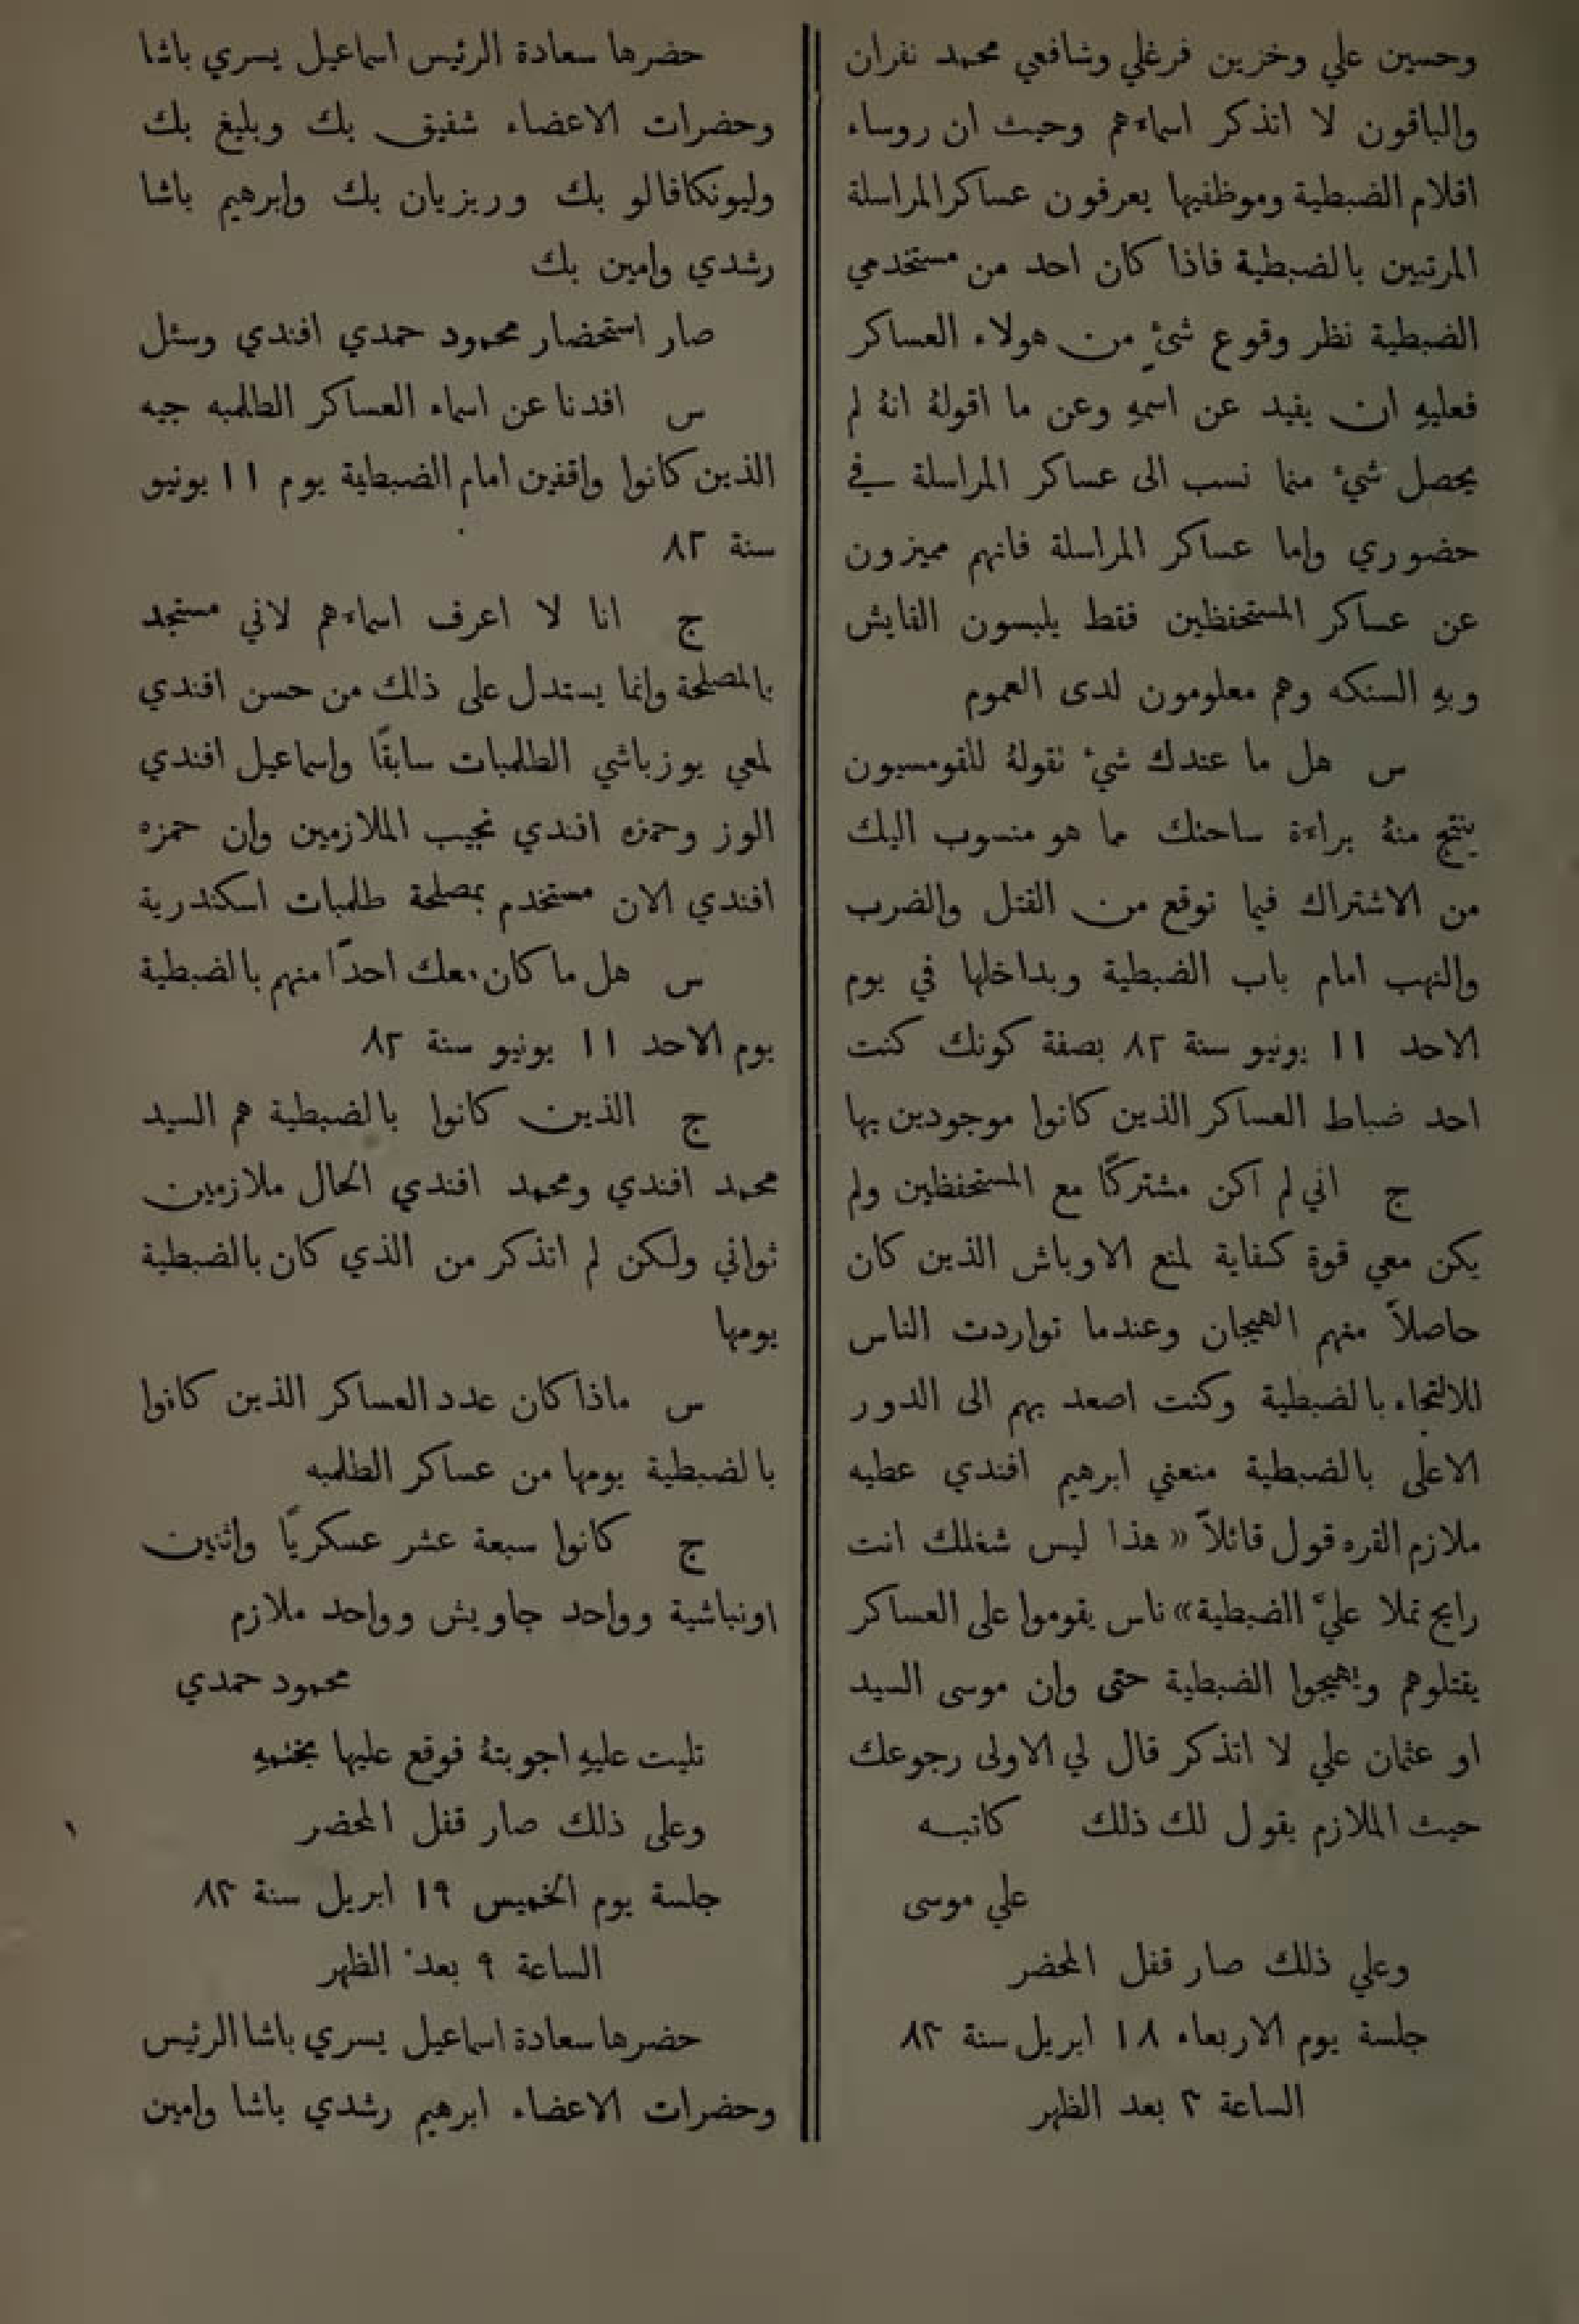 وحسين علي وخزين فرغلي وشافعي محمد نفران
والباقون لا اتذكر اسماءهم وحيث ان روساء
اقلام الضبطية وموظفيها يعرفون عساكر المراسلة
المرتبين بالضبطية فاذا كان احد من مستخدمي
الضبطية نظر وقوع شيءٍ من هولاء العساكر
فعليهِ ان يفيد عن اسمهِ وعن ما اقولهُ انهُ لم
يحصل شيءٌ مما نسب الى عساكر المراسلة في
حضوري واما عساكر المراسلة فانهم مميزون
عن عساكر المستحفظين فقط يلبسون القايش
وبهِ السنكه وهم معلومون لدى العموم
س هل ما عندك شيءٌ نقولهُ للقومسيون
ينتج منهُ براءة ساحتك مما هو منسوب اليك
من الاشتراك فيما توقع من القتل والضرب
والنهب امام باب الضبطية وبداخلها في يوم
الاحد ١١ يونيو سنة ٨٢ بصفة كونك كنت
احد ضباط العساكر الذين كانوا موجودين بها
ج اني لم اكن مشتركًا مع المستحفظين ولم
يكن معي قوة كفاية لمنع الاوباش الذين كان
حاصلاً منهم الهيجان وعندما تواردت الناس
للالتجاء بالضبطية وكنت اصعد بهم الى الدور
الاعلى بالضبطية منعني ابرهيم افندي عطيه
ملازم القره قول قائلاً « هذا ليس شغلك انت
رايح تملا عليّ الضبطية» ناس يقوموا على العساكر
يقتلوهم ويهيجوا الضبطية حتى وان موسى السيد
او عثمان علي لا اتذكر قال لي الاولى رجوعك
حيث الملازم يقول لك ذلك كاتبه
علي موسى
وعلي ذلك صار قفل المحضر
جلسة يوم الاربعاء ١٨ ابريل سنة ٨٣
الساعة ٣ بعد الظهر
حضرها سعادة الرئيس اسماعيل يسري باشا
وحضرات الاعضاء شفيق بك وبليغ بك
وليونكافالو بك وريزيان بك وابرهيم باشا
رشدي وامين بك
صار استحضار محمود حمدي افندي وسئل
س افدنا عن اسماء العساكر الطلمبه جيه
الذين كانوا واقفين امام الضبطية يوم ١١ يونيو
سنة ٨٢
ج انا لا اعرف اسماءهم لاني مستجد
بالمصلحة وانما يستدل على ذالك من حسن افندي
لمعي يوزباشي الطلمبات سابقًا واسماعيل افندي
الوز وحمزه افندي نجيب الملازمين وان حمزه
افندي الان مستخدم بمصلحة طلمبات اسكندرية
س هل ما كان معك احدًا منهم بالضبطية
يوم الاحد ١١ يونيو سنة ٨٢
ج الذين كانوا بالضبطية هم السيد
محمد افندي ومحمد افندي الحال ملازمين
ثواني ولكن لم اتذكر من الذي كان بالضبطية
يومها
س ماذا كان عدد العساكر الذين كانوا
بالضبطية يومها من عساكر الطلمبه
ج كانوا سبعة عشر عسكريًا واثنين
اونباشية وواحد جاويش وواحد ملازم
محمود حمدي
تليت عليهِ اجوبتهُ فوقع عليها بختمهِ
وعلى ذلك صار قفل المحضر
جلسة يوم الخميس ١٩ ابريل سنة ٨٣
الساعة ٩ بعد الظهر
حضرها سعادة اسماعيل يسري باشا الرئيس
وحضرات الاعضاء ابرهيم رشدي باشا وامين